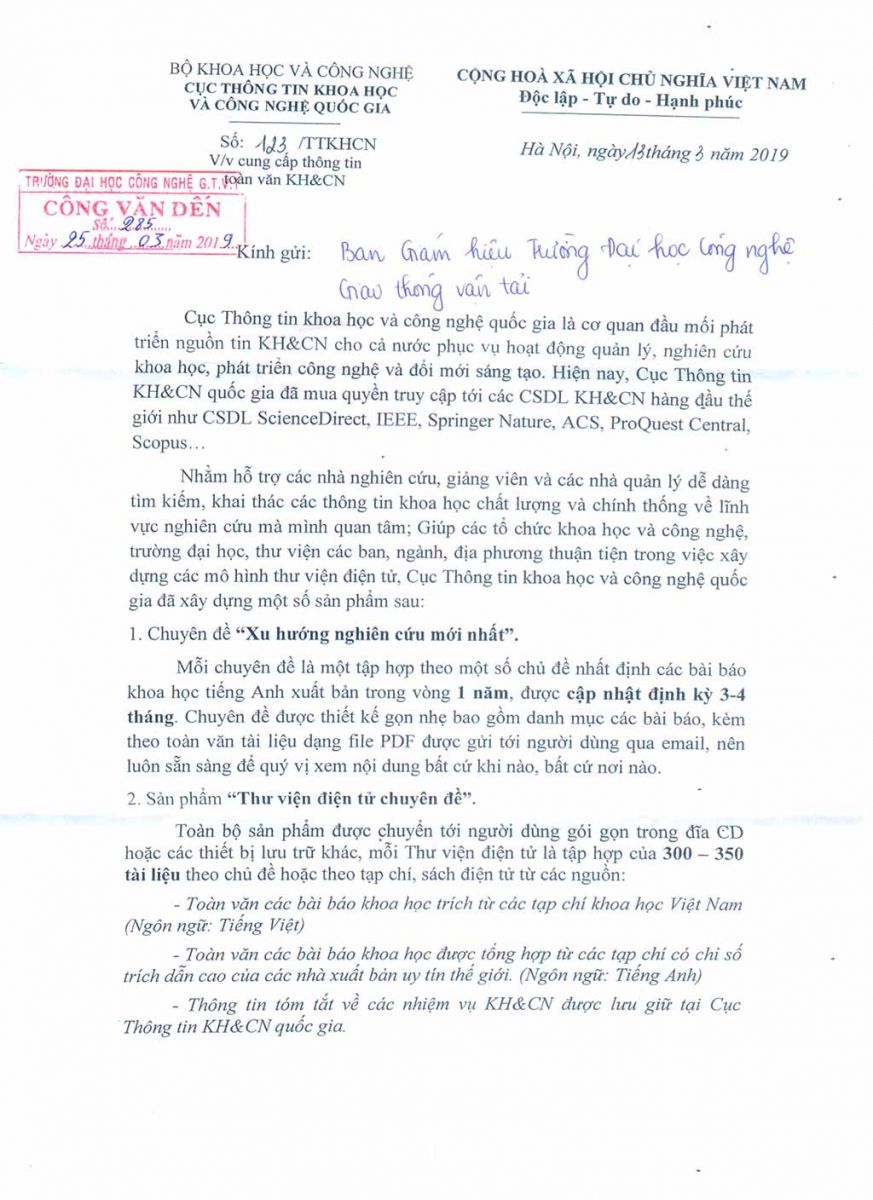 BỘ KHOA HỌC VÀ CÔNG NGHỆ
CỤC THÔNG TIN KHOA HỌC
VÀ CÔNG NGHỆ QUỐC GIA
Số: 123 /TTKHCN
V/v cung cấp thông tin
toàn văn KH&CN
CỘNG HOÀ XÃ HỘI CHỦ NGHĨA VIỆT NAM
Độc lập - Tự do - Hạnh phúc
Hà Nội, ngày 13 tháng 3 năm 2019
TRƯỜNG ĐẠI HỌC CÔNG NGHỆ G.T.V.T
CÔNG VĂN ĐẾN
Số: 285
Ngày 25 tháng 03 năm 2019
Kính gửi: Ban Giám hiệu Trường Đại học Công nghệ
Giao thông vận tải
Cục Thông tin khoa học và công nghệ quốc gia là cơ quan đầu mối phát
triển nguồn tin KH&CN cho cả nước phục vụ hoạt động quản lý, nghiên cứu
khoa học, phát triển công nghệ và đổi mới sáng tạo. Hiện nay, Cục Thông tin
KH&CN quốc gia đã mua quyền truy cập tới các CSDL KH&CN hàng đầu thế
giới như CSDL ScienceDirect, IEEE, Springer Nature, ACS, ProQuest Central,
Scopus…
Nhằm hỗ trợ các nhà nghiên cứu, giảng viên và các nhà quản lý dễ dàng
tìm kiếm, khai thác các thông tin khoa học chất lượng và chính thống về lĩnh
vực nghiên cứu mà mình quan tâm; Giúp các tổ chức khoa học và công nghệ,
trường đại học, thư viện các ban, ngành, địa phương thuận tiện trong việc xây
dựng các mô hình thư viện điện tử, Cục Thông tin khoa học và công nghệ quốc
gia đã xây dựng một số sản phẩm sau:
1. Chuyên đề “Xu hướng nghiên cứu mới nhất”.
Mỗi chuyên đề là một tập hợp theo một số chủ đề nhất định các bài báo
khoa học tiếng Anh xuất bản trong vòng 1 năm, được cập nhật định kỳ 3-4
tháng. Chuyên đề được thiết kế gọn nhẹ bao gồm danh mục các bài báo, kèm
theo toàn văn tài liệu dạng file PDF được gửi tới người dùng qua email, nên
luôn sẵn sàng để quý vị xem nội dung bất cứ khi nào, bất cứ nơi nào.
2. Sản phẩm “Thư viện điện tử chuyên đề”.
Toàn bộ sản phẩm được chuyển tới người dùng gói gọn trong đĩa CD
hoặc các thiết bị lưu trữ khác, mỗi Thư viện điện tử là tập hợp của 300 – 350
tài liệu theo chủ đề hoặc theo tạp chí, sách điện tử từ các nguồn:
- Toàn văn các bài báo khoa học trích từ các tạp chí khoa học Việt Nam
(Ngôn ngữ: Tiếng Việt)
- Toàn văn các bài báo khoa học được tổng hợp từ các tạp chí có chỉ số
trích dẫn cao của các nhà xuất bản uy tín thế giới. (Ngôn ngữ: Tiếng Anh)
- Thông tin tóm tắt về các nhiệm vụ KH&CN được lưu giữ tại Cục
Thông tin KH&CN quốc gia.